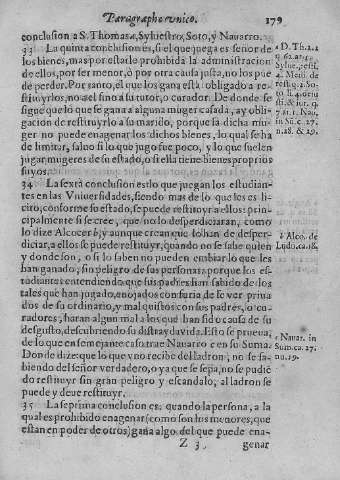 Paragrapho vnico. 179
conclusion a S. Thomas a, Syluestro, Soto, y Nauarro.
33 La quinta conclusion es, si el que juega es señor de
los bienes, mas por estarle prohibida la administracion
de ellos, por ser menor, ò por otra causa justa, no los pue
de perder. Por tanto, el que los gana està obligado a re
stituyrlos, no a el sino a su tutor, o curador. De donde se
sigue que lo que se gana a alguna muger casada, ay obli
gacion de restituyrlo a su marido, porque la dicha mu
ger no puede enagenar los dichos bienes, lo qual se ha
de limitar, saluo si lo que jugo fue poco, y lo que suelen
jugar mugeres de su estado, o si ella tiene bienes proprios
suyos.
34 La sexta conclusion es: lo que juegan los estudian-
tes en las Vniuersidades, siendo mas de lo que les es li-
cito, conforme su estado, se puede restituyr a ellos: prin-
cipalmente si se cree, que no lo desperdiciaran, como
lo dize Alcocer b, y aunque crean que lo han de desper-
diciar, a ellos se puede restituyr, quando no se sabe quien
y donde son, o si lo saben no pueden embiarlo que les
han ganado, sin peligro de sus personas: porque los es-
tudiantes entendiendo que sus padres han sabido de los
tales que han jugado, enojados con furia, de se ver priua
dos de su ordinario, y mal quistos con sus padres, ò cu-
radores, haran algun mal a los que han sido causa de su
desgusto, descubriendo su distrayda vida. Esto se prueua,
de lo que en semejante caso trae Nauarro c en su Suma.
Donde dize: que lo que yo recibo del ladron, no se sa-
biendo del señor verdadero, o ya que se sepa, no se pudiē
do restituyr sin gran peligro y escandalo, al ladron se
puede y deue restituyr.
35 La septima conclusion es: quando la persona, a la
qual es prohibido enagenar (como son los menores, que
estan en poder de otros) gana algo del que puede ena-
Z 3 genar
a D. Th. 2. 2
b Alco. de
Ludo. ca. 18.
c Nauar. in
Sum. ca. 17.
nu. 19.